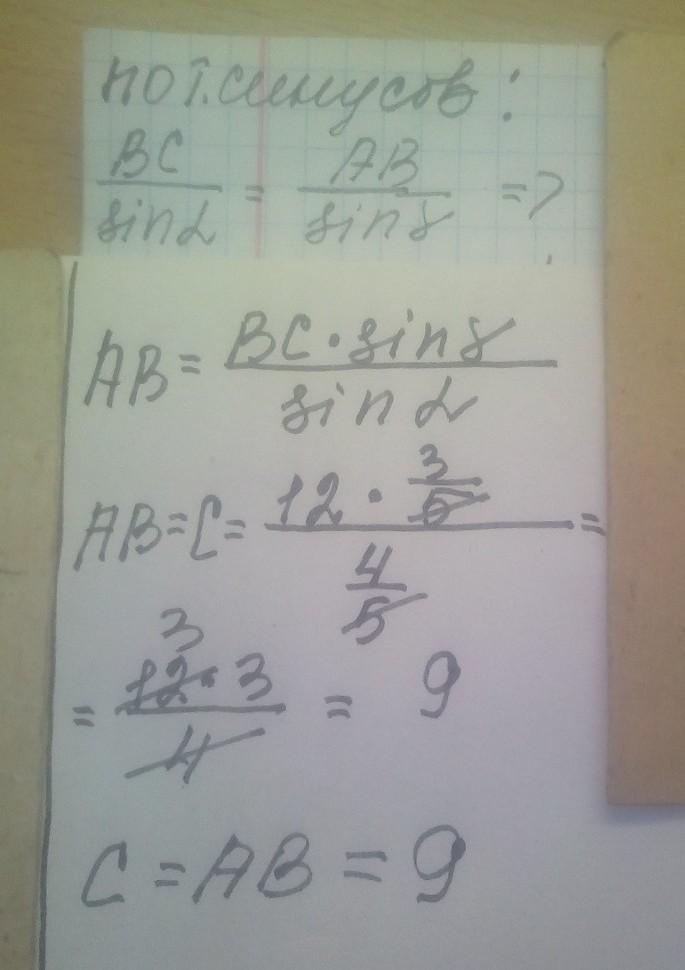 по т. синусов:
BC/sinα = AB/sinγ =>
AB = BC·sinγ/sinα
AB = C = 12·3/5/4/5 =
= 12·3/4 = 9
3
C = AB = 9